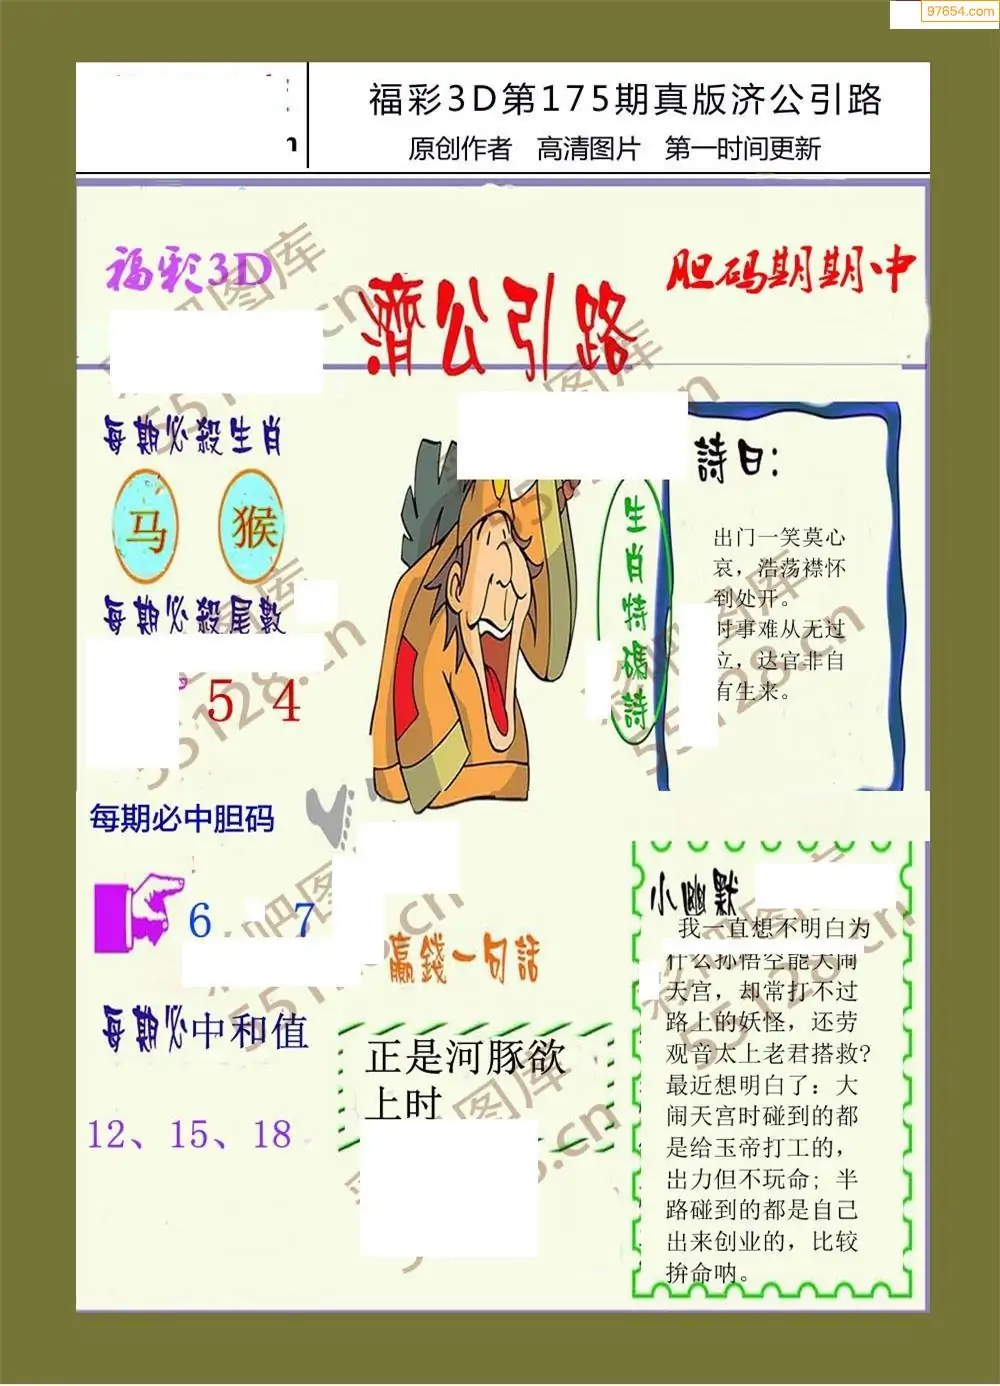 97654.com
福彩3D第175期真版济公引路
原创作者 高清图片 第一时间更新
福彩3D
濟公引路
胆码期期中
每期必殺生肖
马 猴
每期必殺尾數
5 4
每期必中胆码
6 7
每期必中和值
12、15、18
生肖特碼詩
詩曰：
出门一笑莫心
哀，浩荡襟怀
到处开。
时事难从无过
立，达官非自
有生来。
赢錢一句話
正是河豚欲
上时
小幽默
我一直想不明白为
什么孙悟空能大闹
天宫，却常打不过
路上的妖怪，还劳
观音太上老君搭救?
最近想明白了：大
闹天宫时碰到的都
是给玉帝打工的，
出力但不玩命；半
路碰到的都是自己
出来创业的，比较
拚命呐。
55128.cn